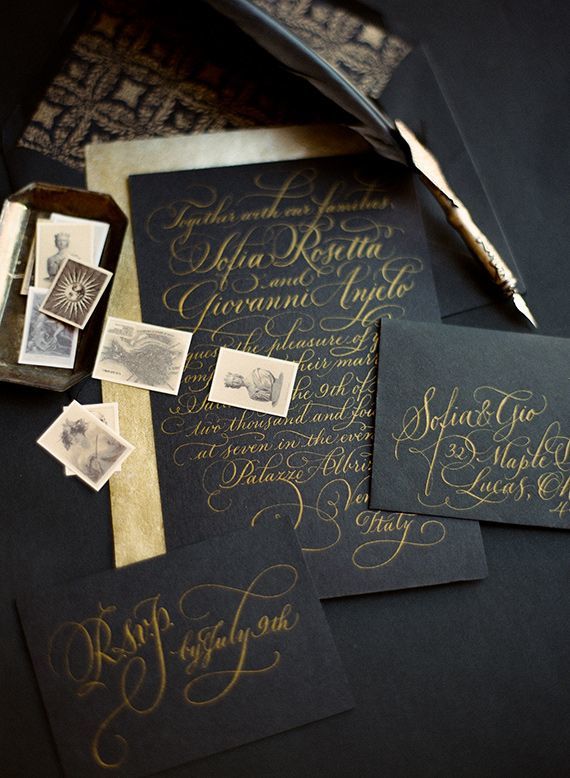 Together with our families,
Sofia Rosetta
and
Giovanni Anjelo
the pleasure of
their
the 9th of
two thousand and
at seven in the
Palazzo
Italy
Sofia & Gio
32 Maple
Lucas,
R.s.v.p.
by July 9th